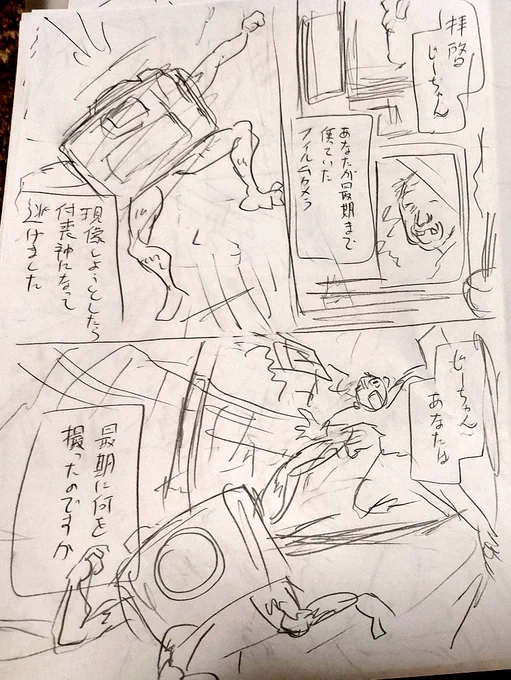 拝啓
じーちゃん
あなたが最期まで
使っていた
フィルムカメラ
現像しようとしたら
付喪神になって
逃げました
じーちゃん〜
あなたは
最期に何を
撮ったのですか